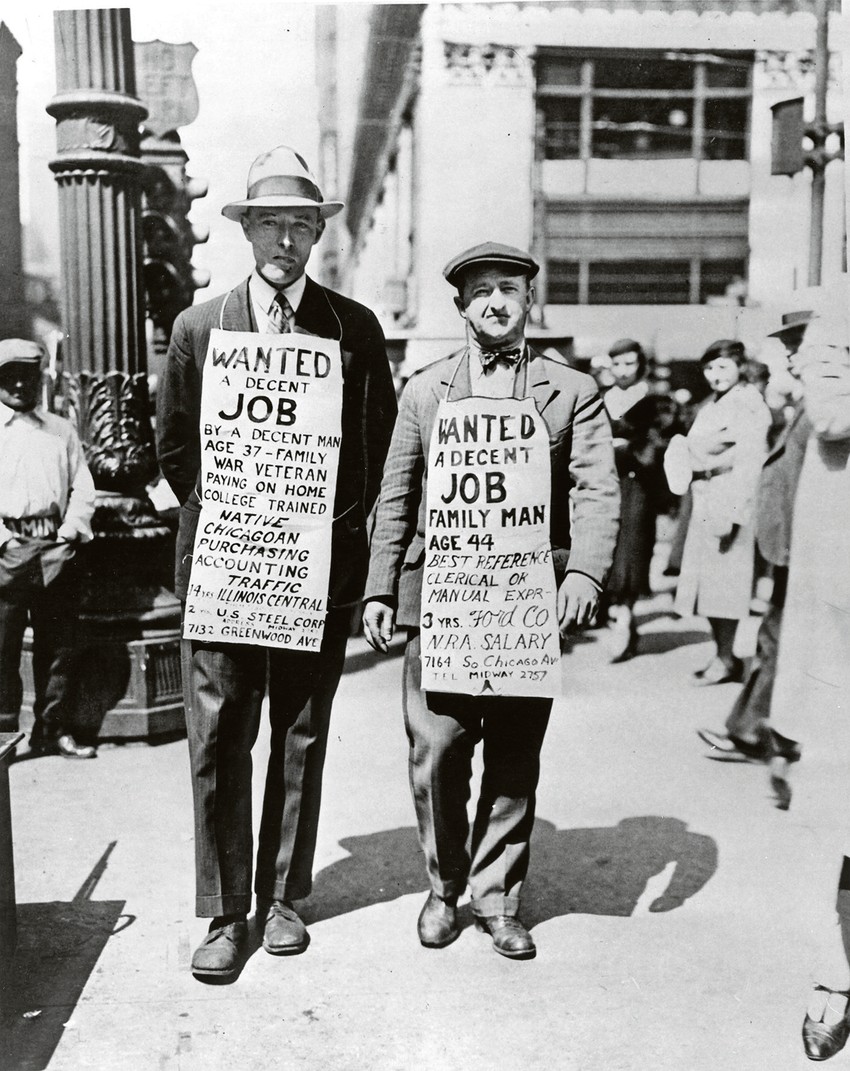 WANTED
A DECENT
JOB
BY A DECENT MAN
AGE 37 - FAMILY
WAR VETERAN
PAYING ON HOME
COLLEGE TRAINED
NATIVE
CHICAGOAN
PURCHASING
ACCOUNTING
TRAFFIC
14 YRS ILLINOIS CENTRAL
2 U.S STEEL CORP
MIDWAY
7132 GREENWOOD AVE
WANTED
A DECENT
JOB
FAMILY MAN
AGE 44
BEST REFERENCE
CLERICAL OR
MANUAL EXPR-
3 YRS. Ford Co
N.R.A. SALARY
7164 So CHICAGO AV
TEL MIDWAY 2757
MIN